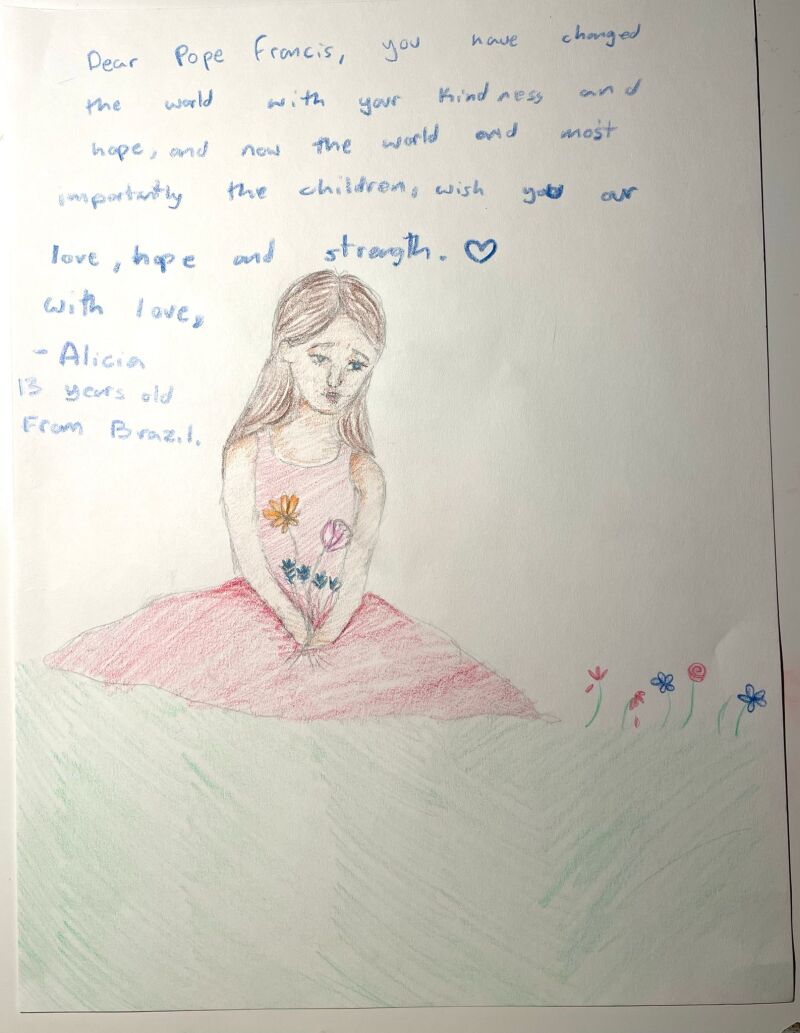 Dear Pope Francis, you have changed
the world with your kindness and
hope, and now the world and most
importantly the children, wish you our
love, hope and strength. ♡
with love,
- Alicia
13 years old
From Brazil.